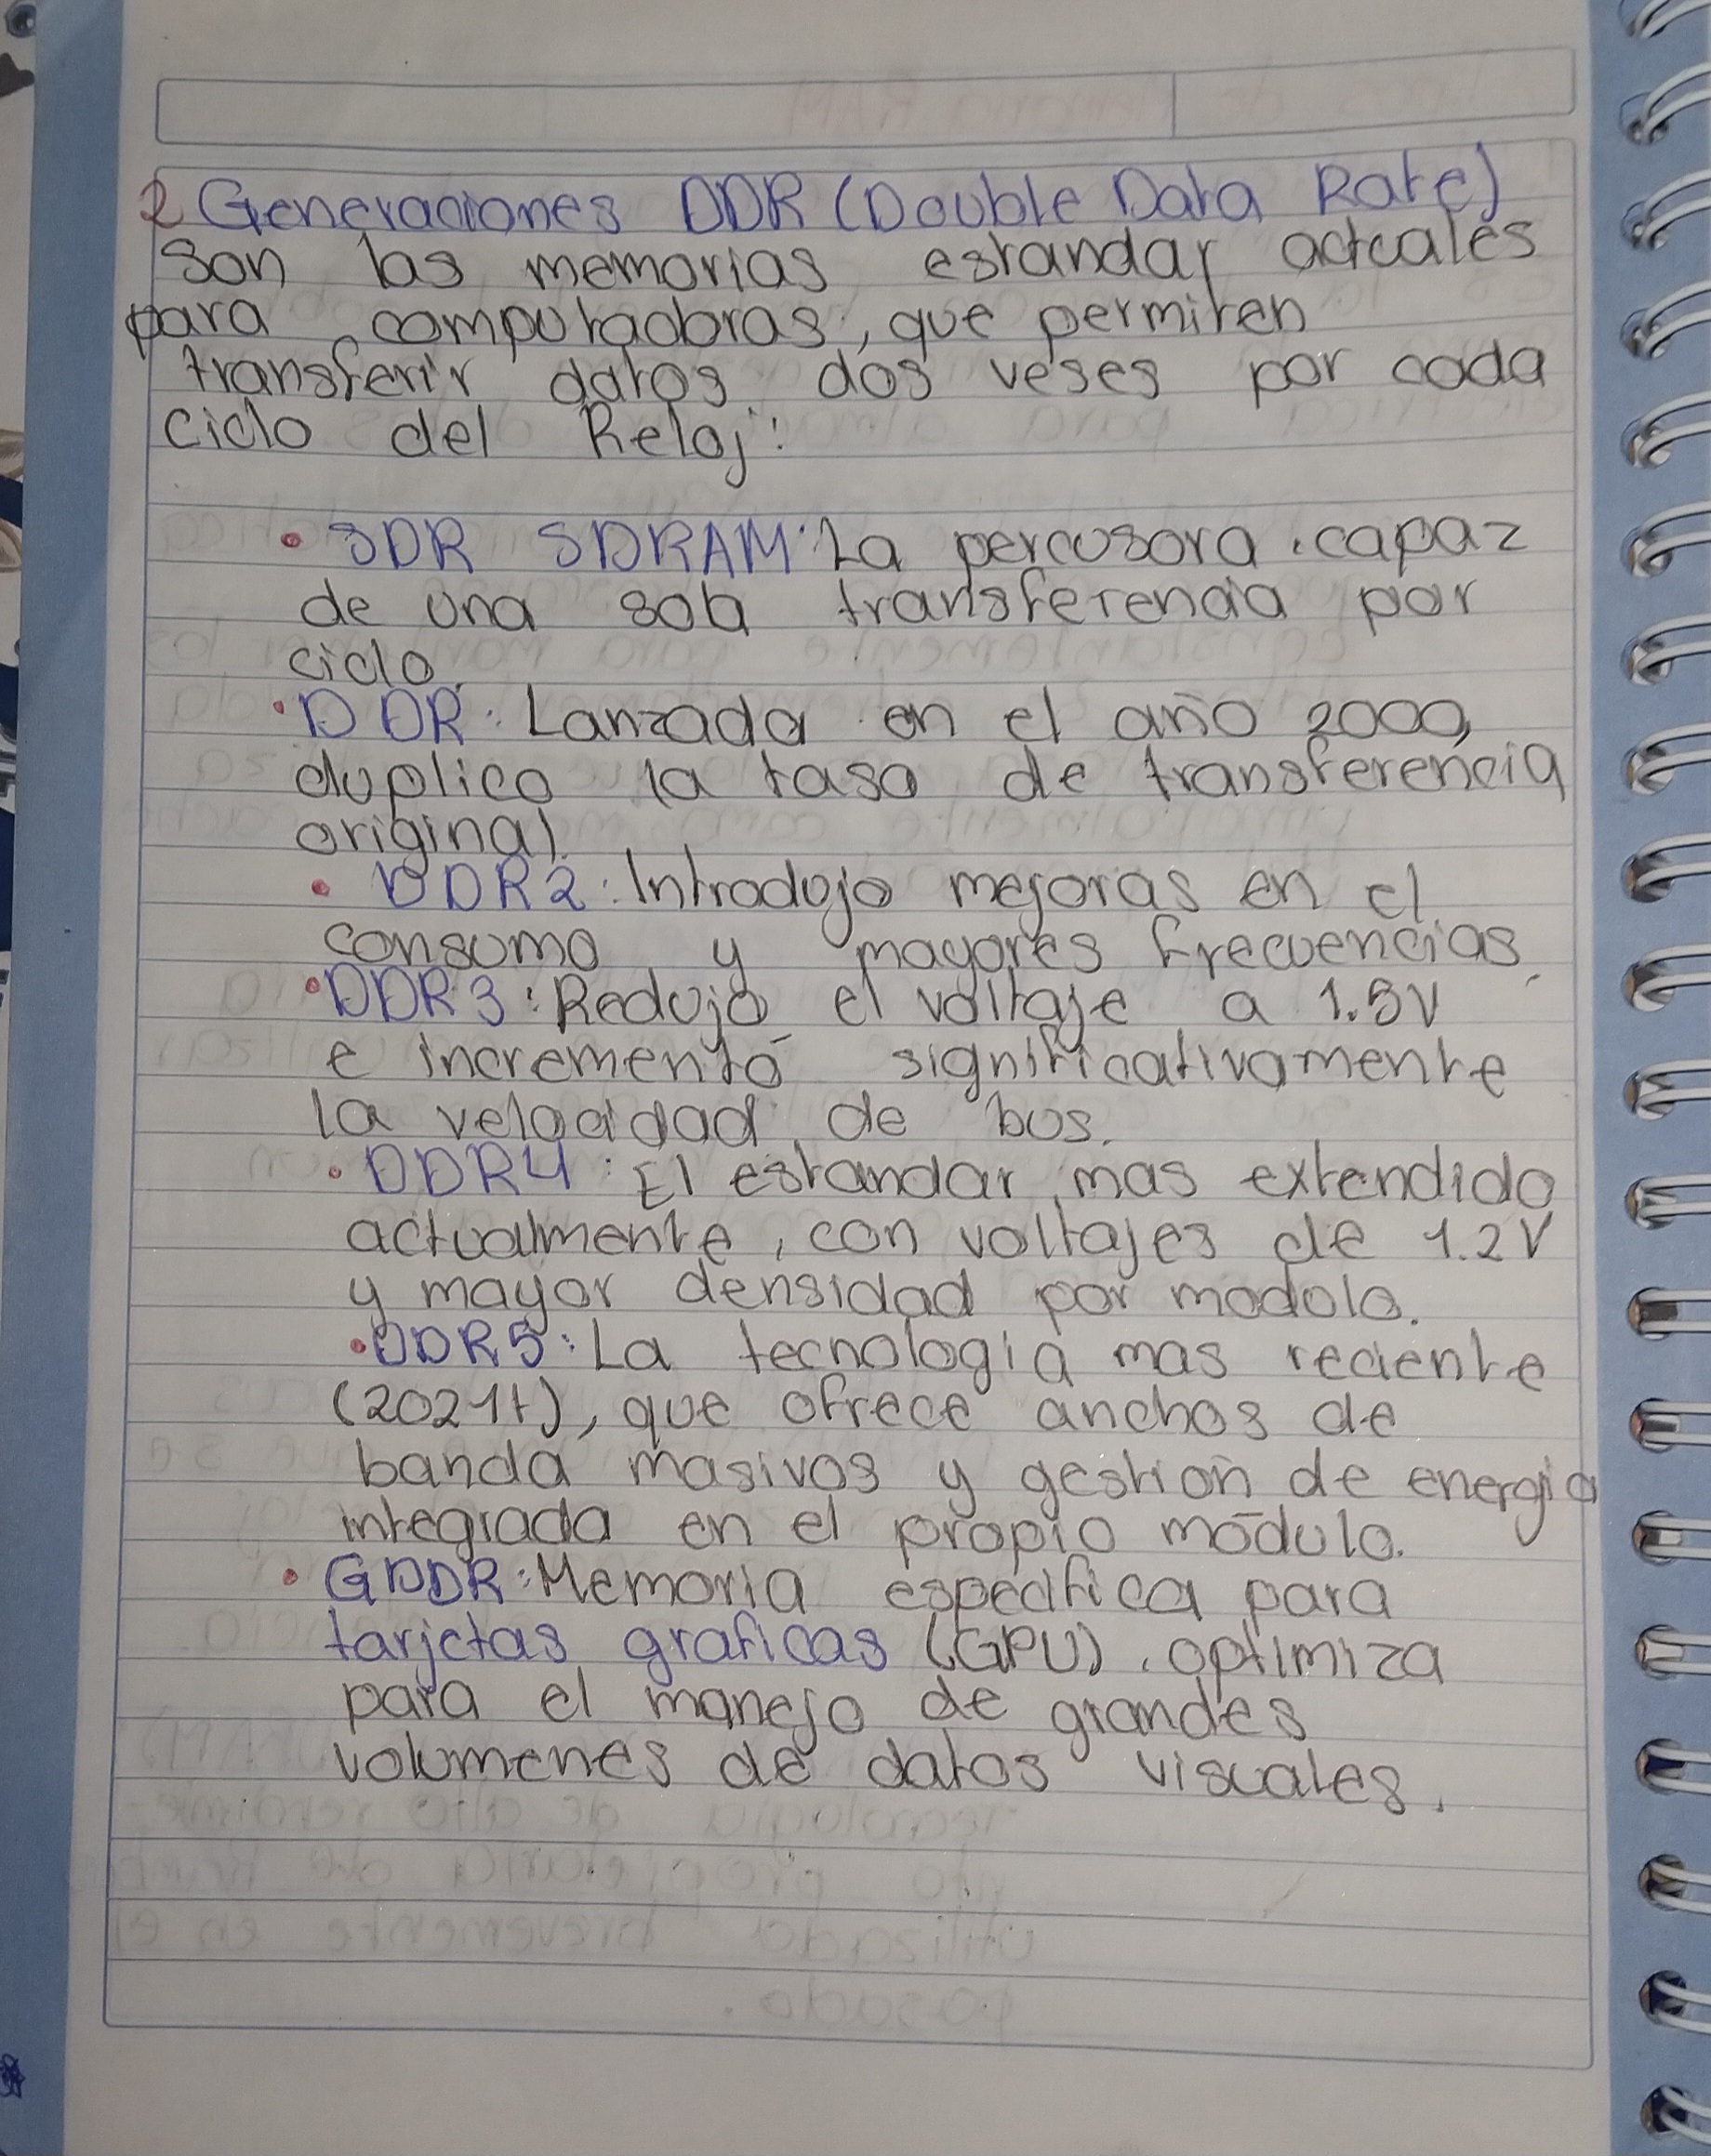 2 Generaciones DDR (Double Data Rate)
Son las memorias estandar actuales
para computadoras, que permiten
transferir datos dos veses por cada
ciclo del Reloj:
• SDR SDRAM: La percusora, capaz
de una sola transferencia por
ciclo.
• DDR: Lanzada en el año 2000,
duplico la tasa de transferencia
original.
• DDR2: Introdujo mejoras en el
consumo y mayores frecuencias.
• DDR3: Redujo el voltaje a 1.5V
e incrementó significativamente
la velocidad de bus.
• DDR4: El estandar mas extendido
actualmente, con voltajes de 1.2V
y mayor densidad por modulo.
• DDR5: La tecnologia mas reciente
(2021+), que ofrece anchos de
banda masivos y gestion de energia
integrada en el propio módulo.
• GDDR: Memoria especifica para
tarjetas graficas (GPU), optimiza
para el manejo de grandes
volumenes de datos visuales.